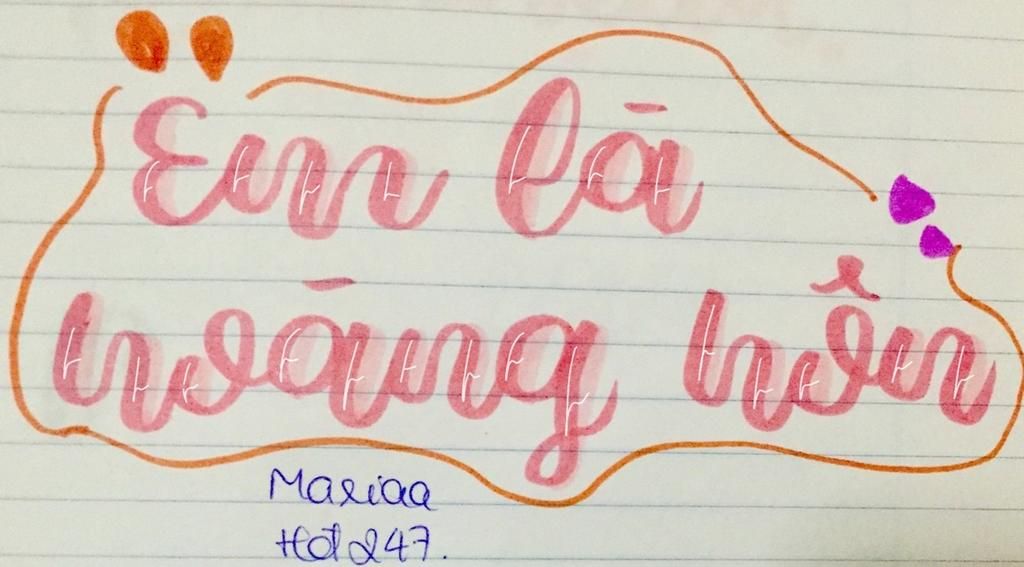 Em là
hoàng hôn
Mariaa
Hot247.